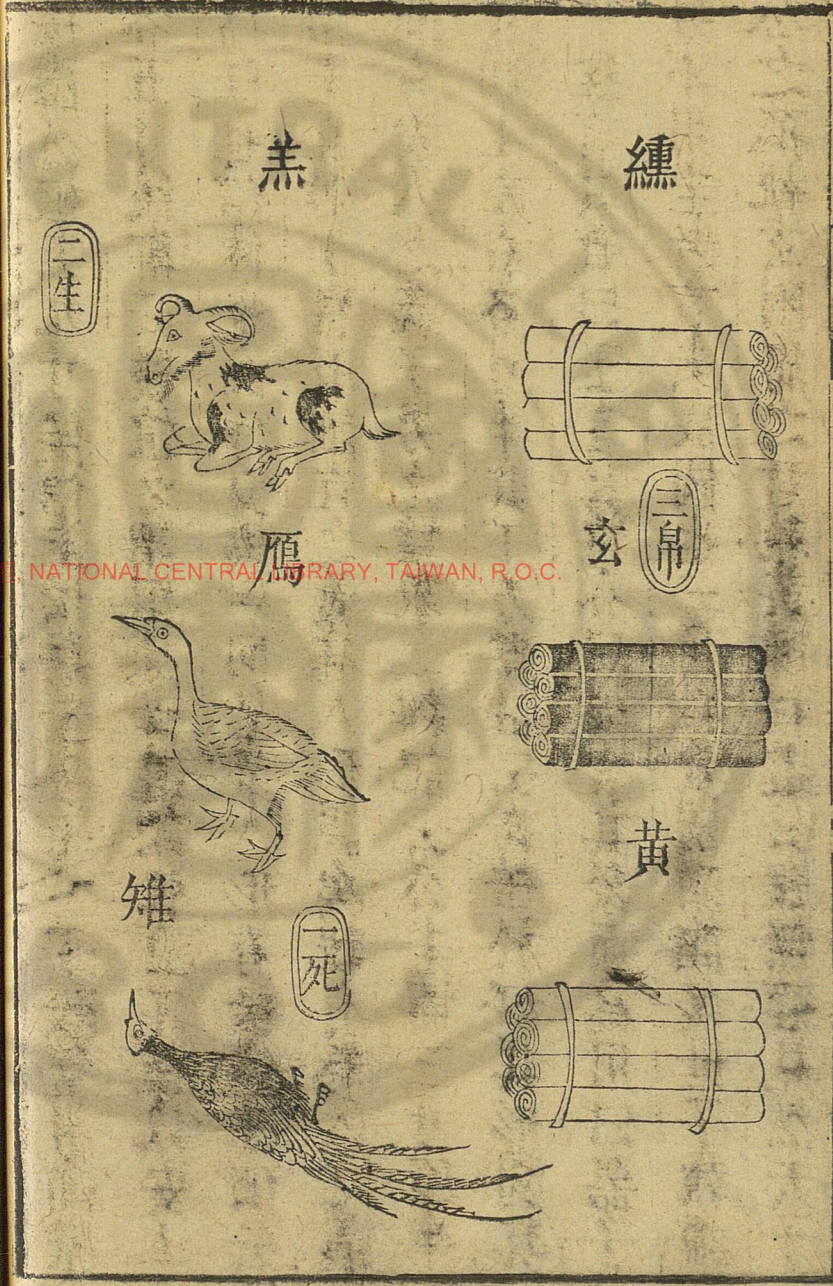 纁
三帛
玄
黃
羔
二生
鴈
一死
雉
NATIONAL CENTRAL LIBRARY, TAIWAN, R.O.C.